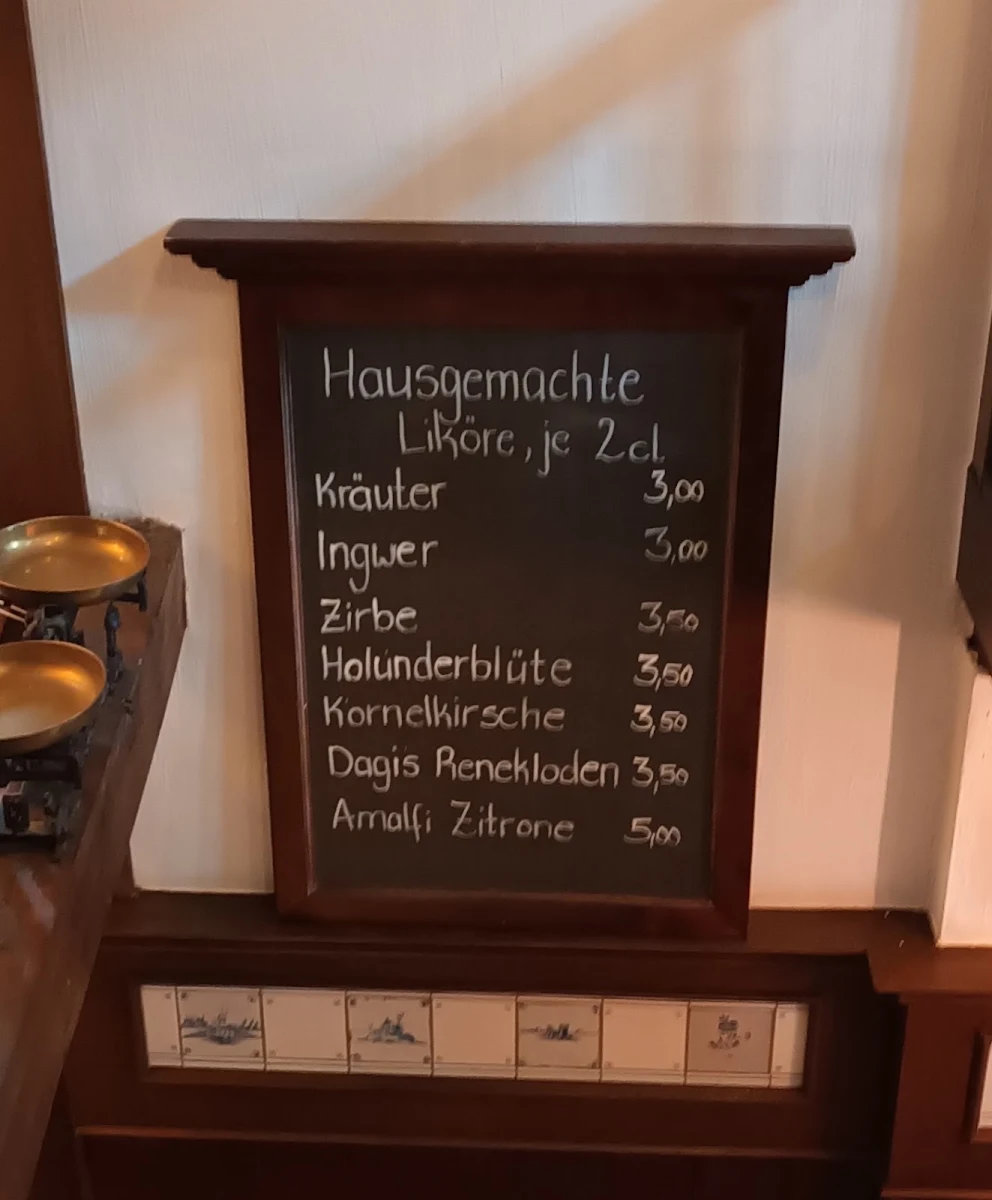 Hausgemachte
Liköre, je 2cl
Kräuter 3,00
Ingwer 3,00
Zirbe 3,50
Holunderblüte 3,50
Kornelkirsche 3,50
Dagis Renekloden 3,50
Amalfi Zitrone 5,00